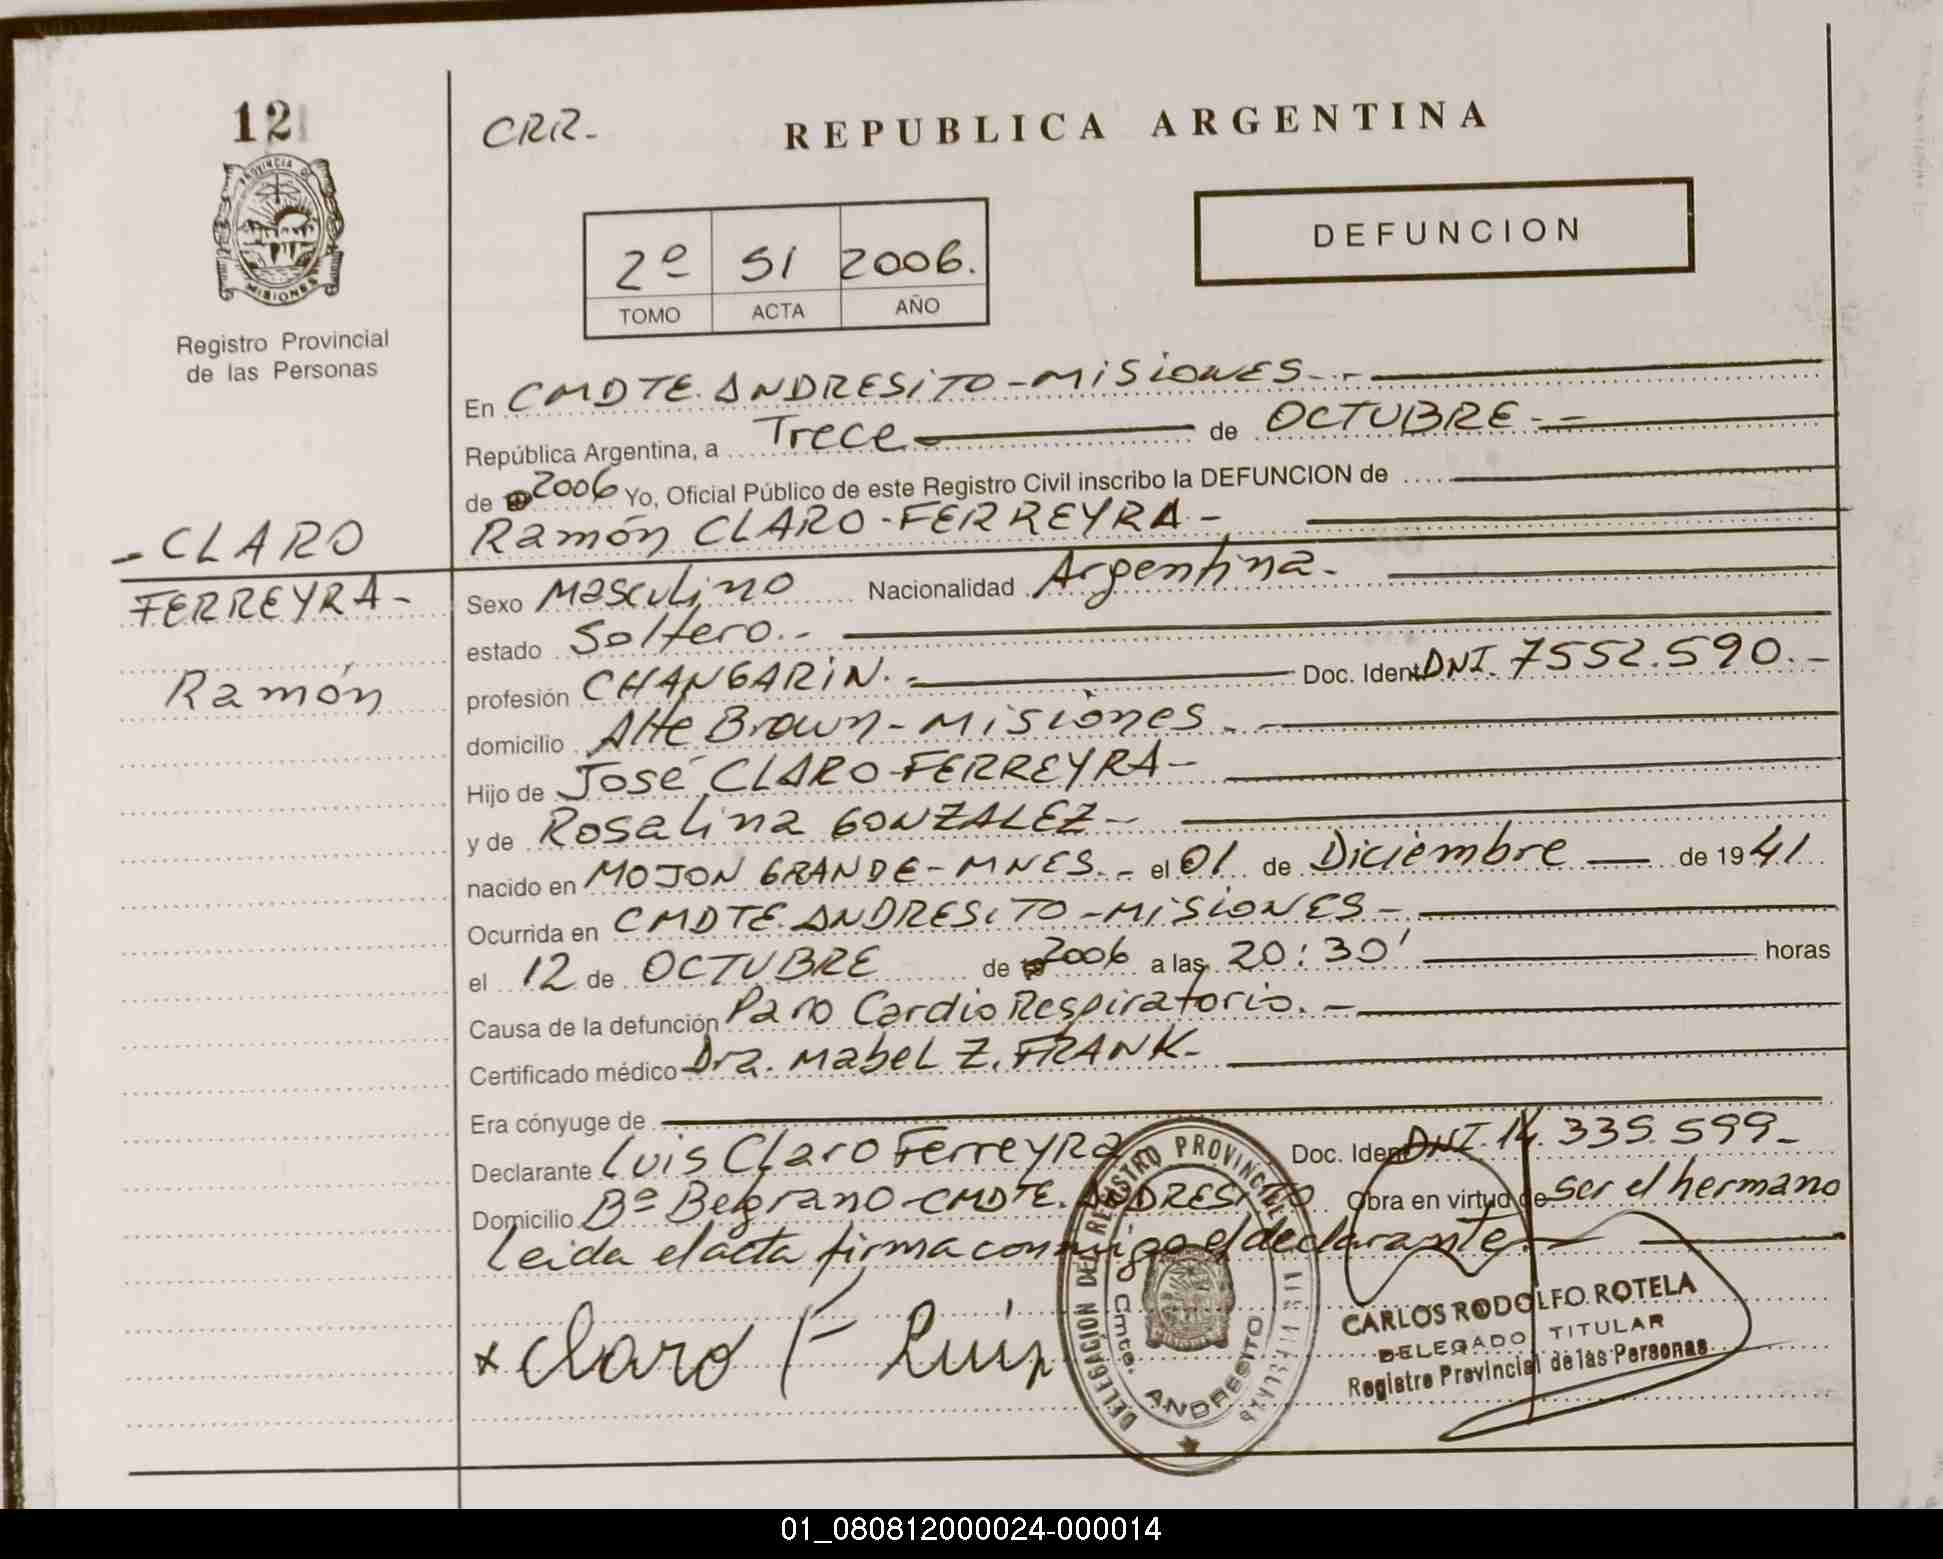 12
PROVINCIA DE
MISIONES
Registro Provincial
de las Personas
CRR-
REPUBLICA ARGENTINA
2º 51 2006.
TOMO ACTA AÑO
DEFUNCION
En CMDTE. ANDRESITO - MISIONES.-
República Argentina, a Trece de OCTUBRE.-
de 2006 Yo, Oficial Público de este Registro Civil inscribo la DEFUNCION de
Ramón CLARO-FERREYRA-
- CLARO
FERREYRA-
Ramón
Sexo Masculino Nacionalidad Argentina.-
estado Soltero.-
profesión CHANGARIN.- Doc. Ident. DNI. 7552.590.-
domicilio Alte Brown - Misiones.-
Hijo de José CLARO-FERREYRA-
y de Rosalina GONZALEZ-
nacido en MOJON GRANDE-MNES.- el 01 de Diciembre de 1941
Ocurrida en CMDTE. ANDRESITO - MISIONES-
el 12 de OCTUBRE de 2006 a las 20:30' horas
Causa de la defunción Paro CardioRespiratorio.-
Certificado médico Dra. Mabel Z. FRANK-
Era cónyuge de
Declarante Luis Claro Ferreyra Doc. Ident. DNI. 14.335.599-
Domicilio Bº Belgrano - CMDTE. ANDRESITO Obra en virtud de ser el hermano
Leida el acta firma conmigo el declarante.-
x Claro F Luis
DELEGACION DEL REGISTRO PROVINCIAL DE LAS PERSONAS
Cmte. ANDRESITO
CARLOS RODOLFO ROTELA
DELEGADO TITULAR
Registro Provincial de las Personas
01_080812000024-000014